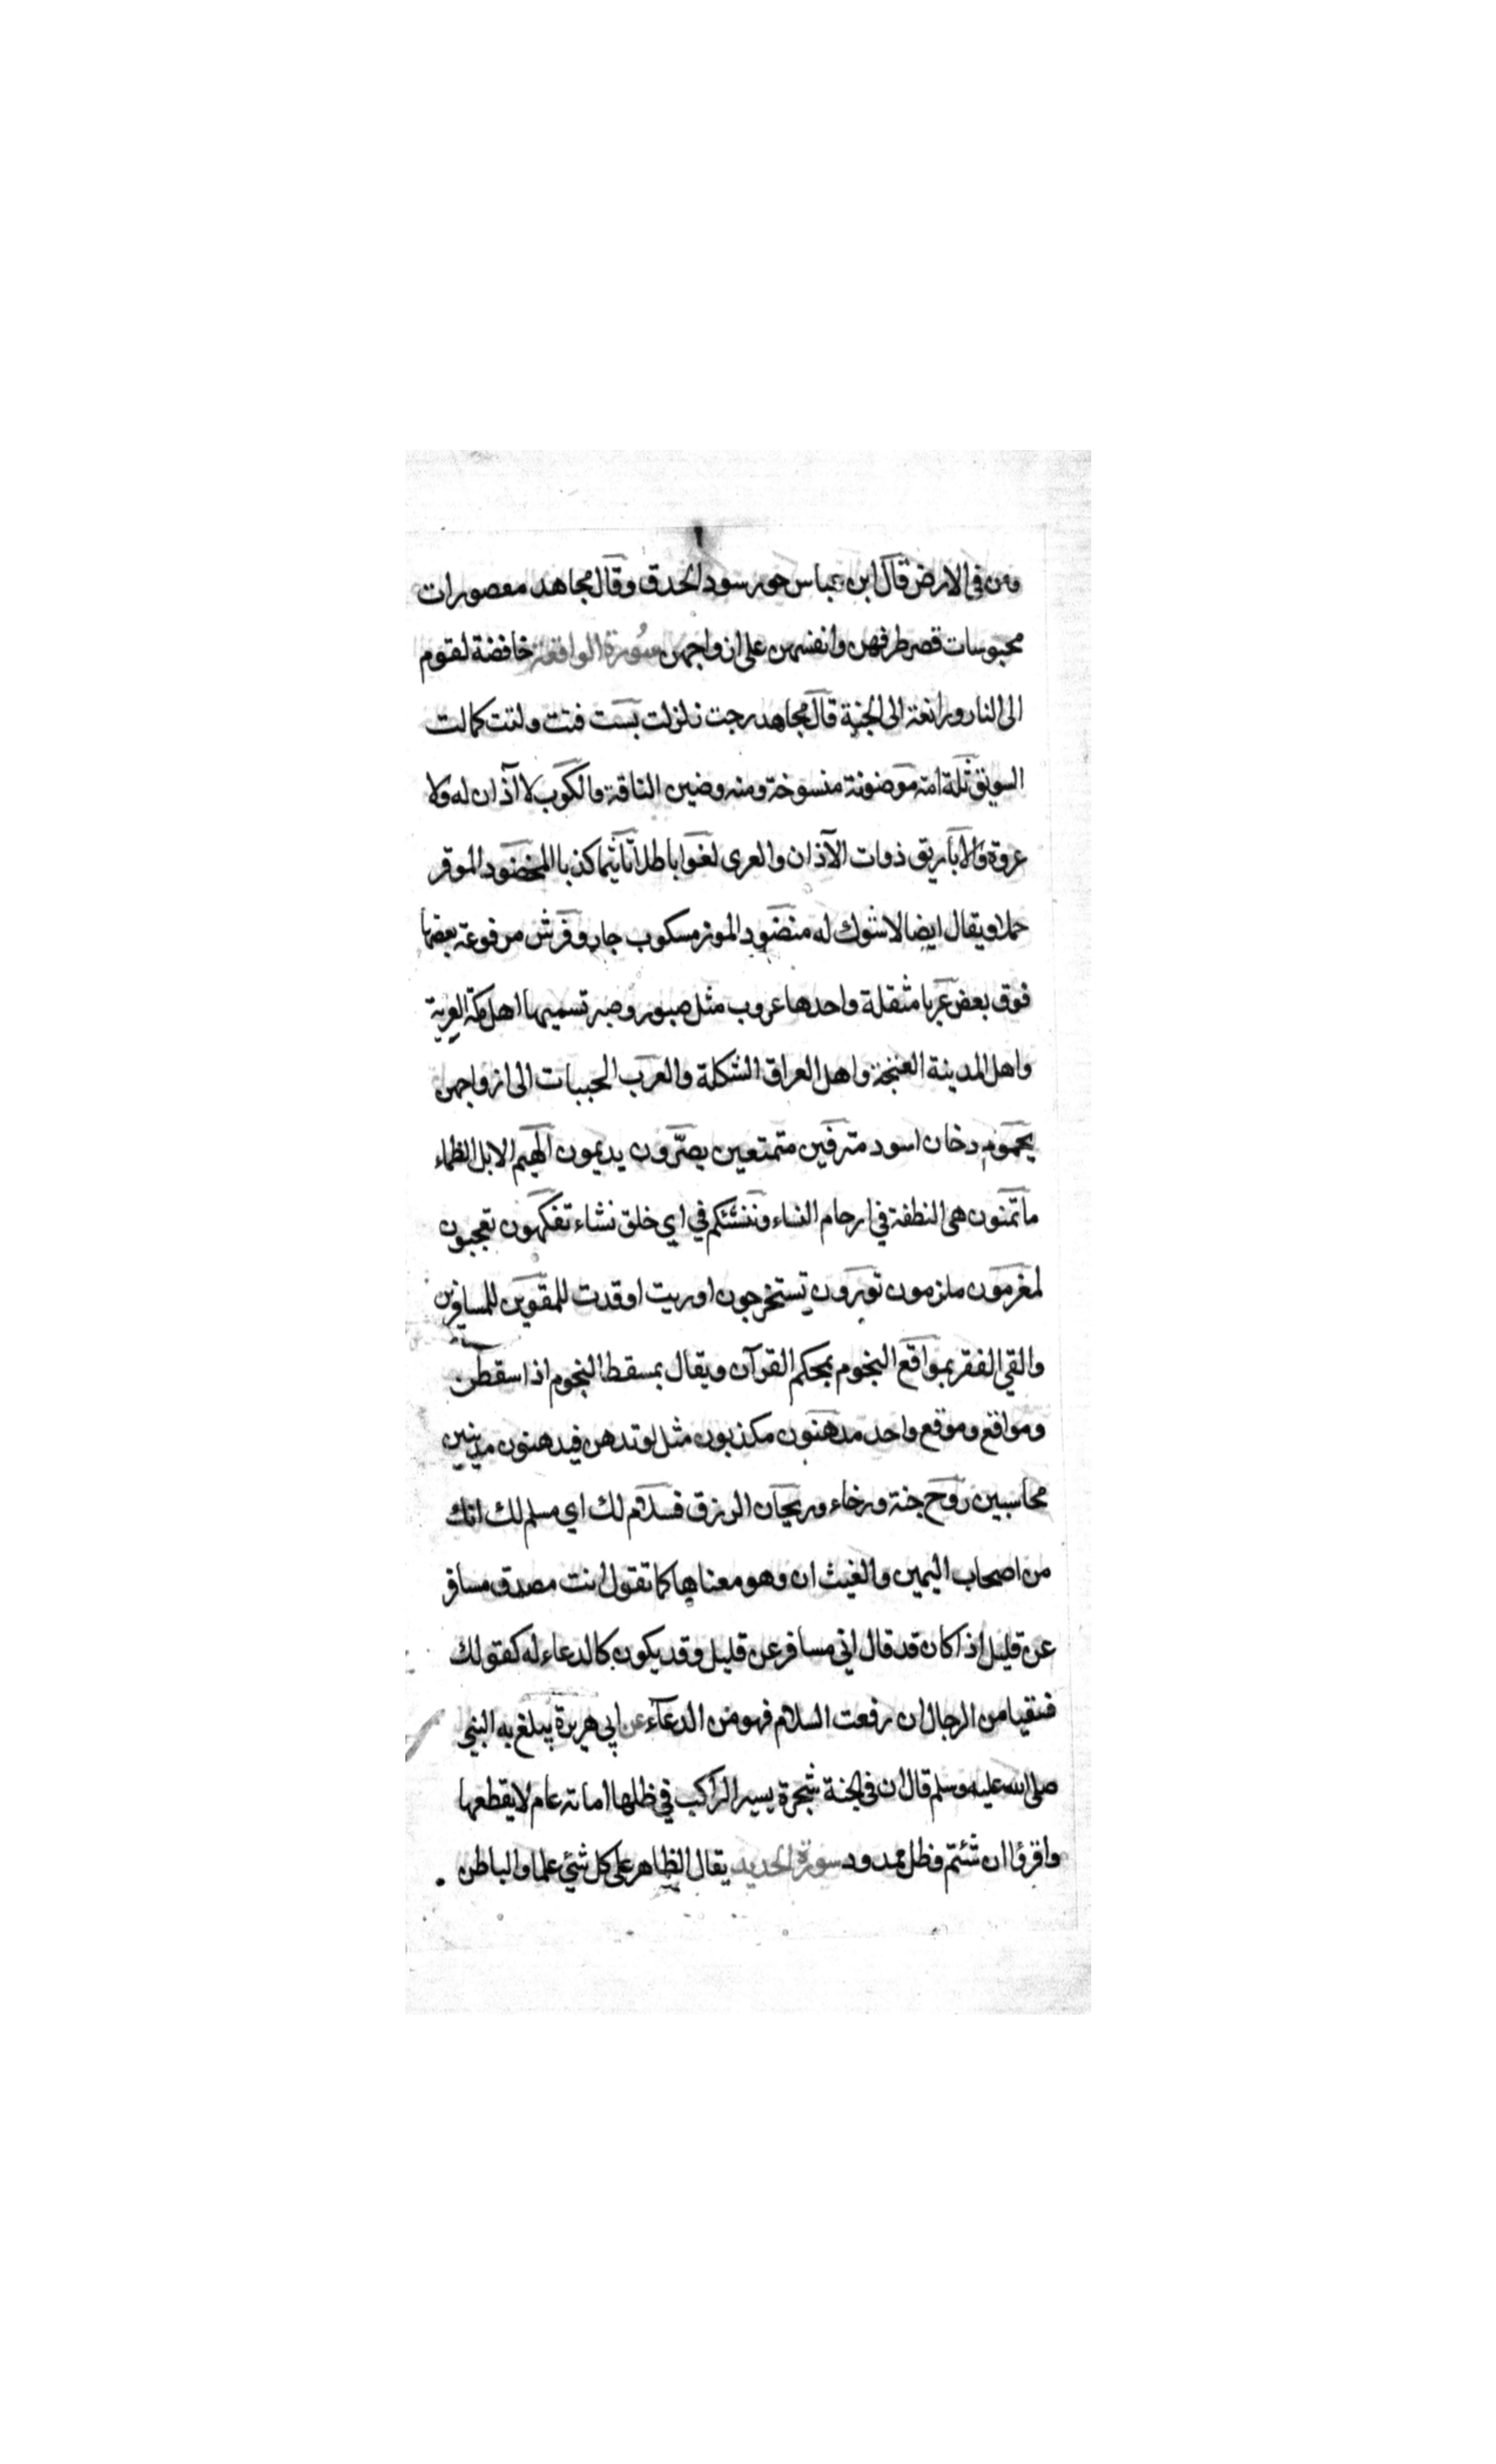 ومن فى الارض قال ابن عباس حور سود الحدق وقال مجاهد مقصورات
محبوسات قصر طرفهن وانفسهن على ازواجهن سورة الواقعة خافضة لقوم
الى النار ورافعة الى الجنة قال مجاهد رجت زلزلت بست فتت ولتت كما لت
السويق ثلة امة موضونة منسوخة ومنه وضين الناقة والكوب لا آذان له ولا
عروة والاباريق ذوات الآذان والعرى لغوا باطلا تأثيما كذبا المخضود الموقر
حملا ويقال ايضا لا شوك له منضود الموز مسكوب جار وفرش مرفوعة بعضها
فوق بعض عربا مثقلة واحدها عروب مثل صبور وصبر تسميها اهل مكة العربة
واهل المدينة الغنجة واهل العراق الشكلة والعرب الحببات الى ازواجهن
يحموم دخان اسود مترفين متمتعين يصرّون يديمون الهيم الابل الظماء
ما تمنون هى النطفة في ارحام النساء وننشئكم في اي خلق نشاء تفكهون تعجبون
لمغرمون ملزمون تورون تستخرجون اوريت اوقدت للمقوين للمسافرين
والقي الفقر بمواقع النجوم بمحكم القرآن ويقال بمسقط النجوم اذا سقطن
ومواقع وموقع واحد مدهنون مكذبون مثل لو تدهن فيدهنون مدينين
محاسبين روح جنة ورخاء وريحان الرزق فسلام لك اي مسلم لك انك
من اصحاب اليمين والغيث ان وهو معناها كما تقول انت مصدق مسافر
عن قليل اذا كان قد قال اني مسافر عن قليل وقد يكون كالدعاء له كقولك
فسقيا من الرجال ان رفعت السلام فهو من الدعآء عن ابي هريرة يبلغ به النبي
صلى الله عليه وسلم قال ان فى الجنة شجرة يسير الراكب في ظلها مائة عام لا يقطعها
واقرؤا ان شئتم وظل ممدود سورة الحديد يقال الظاهر على كل شئ علما والباطن